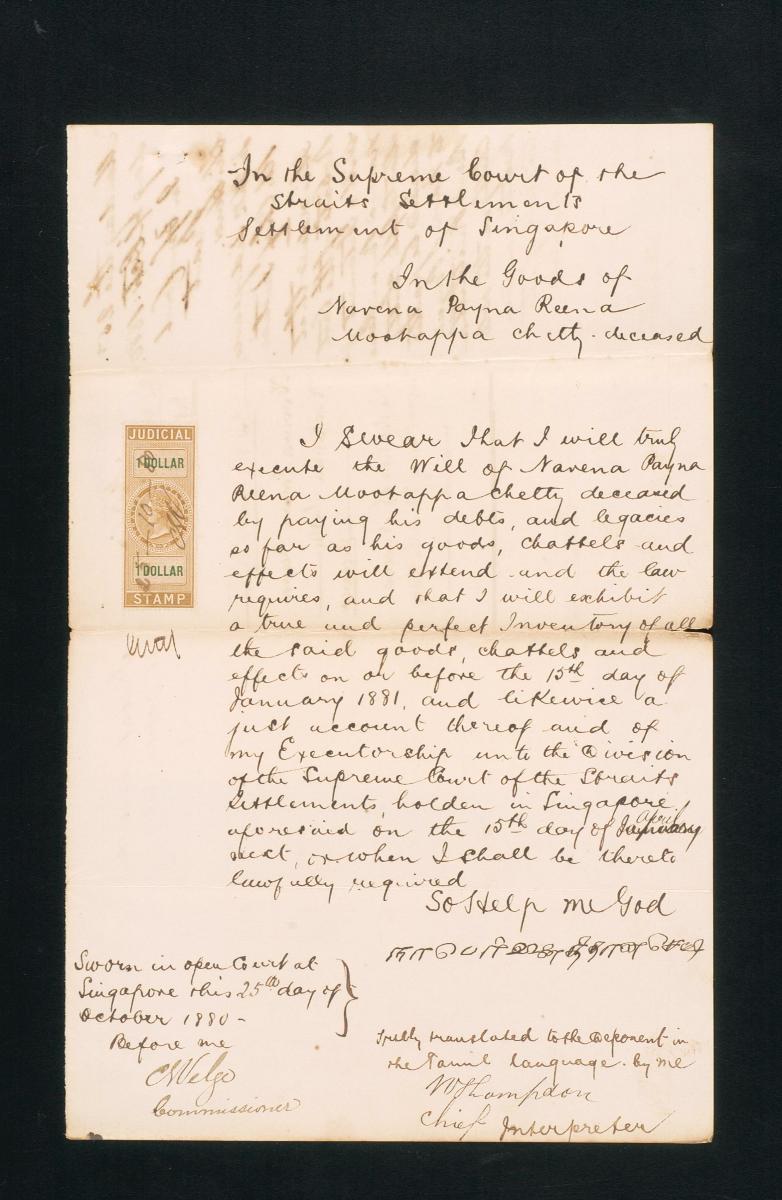 In the Supreme Court of the
Straits Settlements
Settlement of Singapore
In the Goods of
Navena Payna Reena
Mookappa Chetty deceased
JUDICIAL
1 DOLLAR
1 DOLLAR
STAMP
I Swear that I will truly
execute the Will of Navena Payna
Reena Mookappa Chetty deceased
by paying his debts, and legacies
so far as his goods, chattels and
effects will extend and the law
requires, and that I will exhibit
a true and perfect Inventory of all
the said goods, chattels and
effects on or before the 15th day of
January 1881, and likewise a
just account thereof and of
my Executorship unto the Division
of the Supreme Court of the Straits
Settlements, holden in Singapore
aforesaid on the 15th day of January April
next, or when I shall be thereto
lawfully required
So Help me God
Sworn in open Court at
Singapore this 25th day of
October 1880 -
Before me
Commissioner
Truly translated to the Deponent in
the Tamil language by me
Chief Interpreter